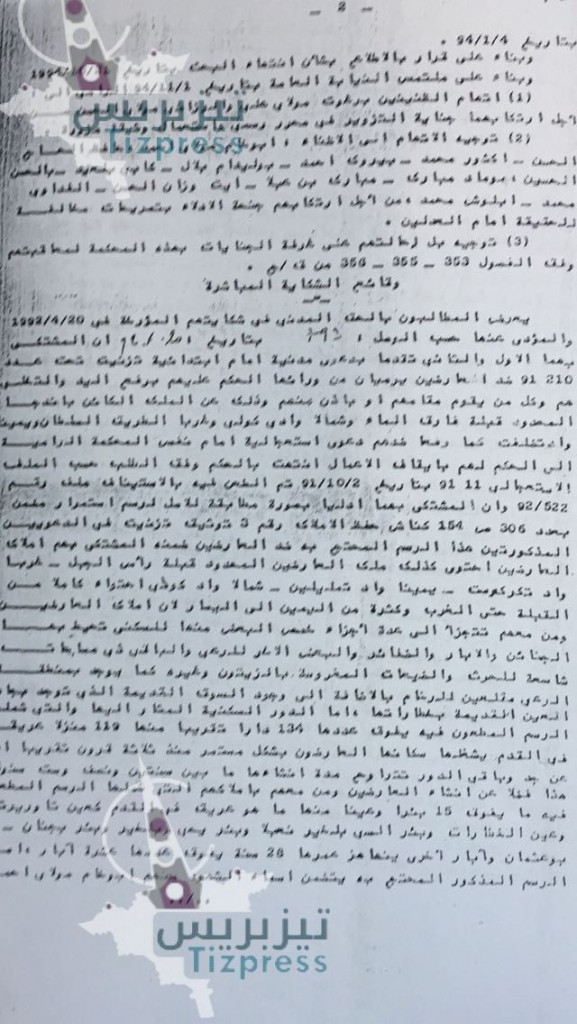 - 2 -
بتاريخ 94/1/4 .
وبناء على قرار بالاطلاع بشأن انتهاء البحث بتاريخ
وبناء على ملتمس النيابة العامة بتاريخ
(1) اتهام الظنينين برغوت مولاي علي
اجل ارتكابهما جناية التزوير في محرر رسمي
(2) توجيه الاتهام الى الاظناء :
الحسن - اكثور محمد - بيروك احمد - بوليدام بلال - كابي سعيد - بالحسن
الحسين ، بوماد مبارك - مبارك بن عبلا - ايت وزان الحسن - الفداوي
محمد - ابلوش محمد ، من اجل ارتكابهم جنحة الادلاء بتصريحات مخالفة
للحقيقة امام العدلين .
(3) توجيه بل احالتهم على غرفة الجنايات بهذه المحكمة لمعاقبتهم
وفق الفصول 353 - 355 - 356 من ق/ج .
وقائع الشكاية المباشرة
يعرض المطالبون بالحق المدني في شكايتهم المؤرخة في 1992/4/20
والمؤدى عنها حسب الوصل بتاريخ ان المشتكى
بهما الاول والثاني تقدما بدعوى مدنية امام ابتدائية تزنيت تحت عدد
210 91 ضد العارضين يرميان من ورائها الحكم عليهم برفع اليد والتخلي
هم وكل من يقوم مقامهم او باذن منهم وذلك عن الملك الكائن
المحدود قبلة فارق الماء وشمالا وادي كولي وغربا الطريق السلطان ويمينا
واد تخلفت كما رفعا ضدهم دعوى استعجالية امام نفس المحكمة الرامية
الى الحكم لهم بايقاف الاعمال انتهت بالحكم وفق الطلب حسب الملف
الاستعجالي 11 91 بتاريخ 91/10/2 تم الطعن فيه بالاستيناف ملف رقم
92/522 وان المشتكى بهما ادليا بصورة مطابقة للاصل لرسم استمرار مضمن
بعدد 306 ص 154 كناش حفظ الاملاك رقم 3 توثيق تزنيت في الدعويين
المذكورتين هذا الرسم المحتج به ضد العارضين ضمنه المشتكى بهم املاك
العارضين احتوى كذلك ملك العارضين المحدود قبلة رأس الجبل - غربا
واد تكركوست - يمينا واد تمليلين - شمالا واد كوطي احتواء كاملا من
القبلة حتى الغرب وكثرة من اليمين الى اليسار لان املاك العارضين
ومن معهم تتجزأ الى عدة اجزاء خصص البعض منها للسكنى تحيط بها
الجنائن والابار والحفائر والبعض الاخر للرعي والباقي ذي مساحات
شاسعة للحرث والضيعات المغروسة بالزيتون وغيره كما يوجد بمنطقة
الرعي مقلعين للرخام بالاضافة الى وجود السوق القديمة الذي توجد بها
العين القديمة بخطاراتها ، اما الدور السكنية المشار اليها والذي شملها
الرسم المطعون فيه يفوق عددها 134 دارا تقريبا منها 119 منزلا عريقة
في القدم يشغلها سكانها العارضون بشكل مستمر منذ ثلاثة قرون تقريبا ابا
عن جد وباقي الدور تتراوح مدة انشاءها ما بين سنتين ونصف وست سنوات
هذا فضلا عن انشاء العارضين ومن معهم باملاكهم التي شملها الرسم المطعون
فيه ما يفوق 15 بئرا وعينا منها ما هو عريق في القدم كعين تاوريرت
وعين الخطارات وبئر السي بلخير نصيلا وبئر يحي وبلخير وبئر بجنان -
بوعثمان وابار اخرى يناهز عمرها 28 سنة يفوق عددها عشرة ابار ، اما
الرسم المذكور المحتج به يتضمن اسماء الشهود منهم ابوهام مولاي احمد
تيزبريس
Tizpress
تيزبريس
Tizpress